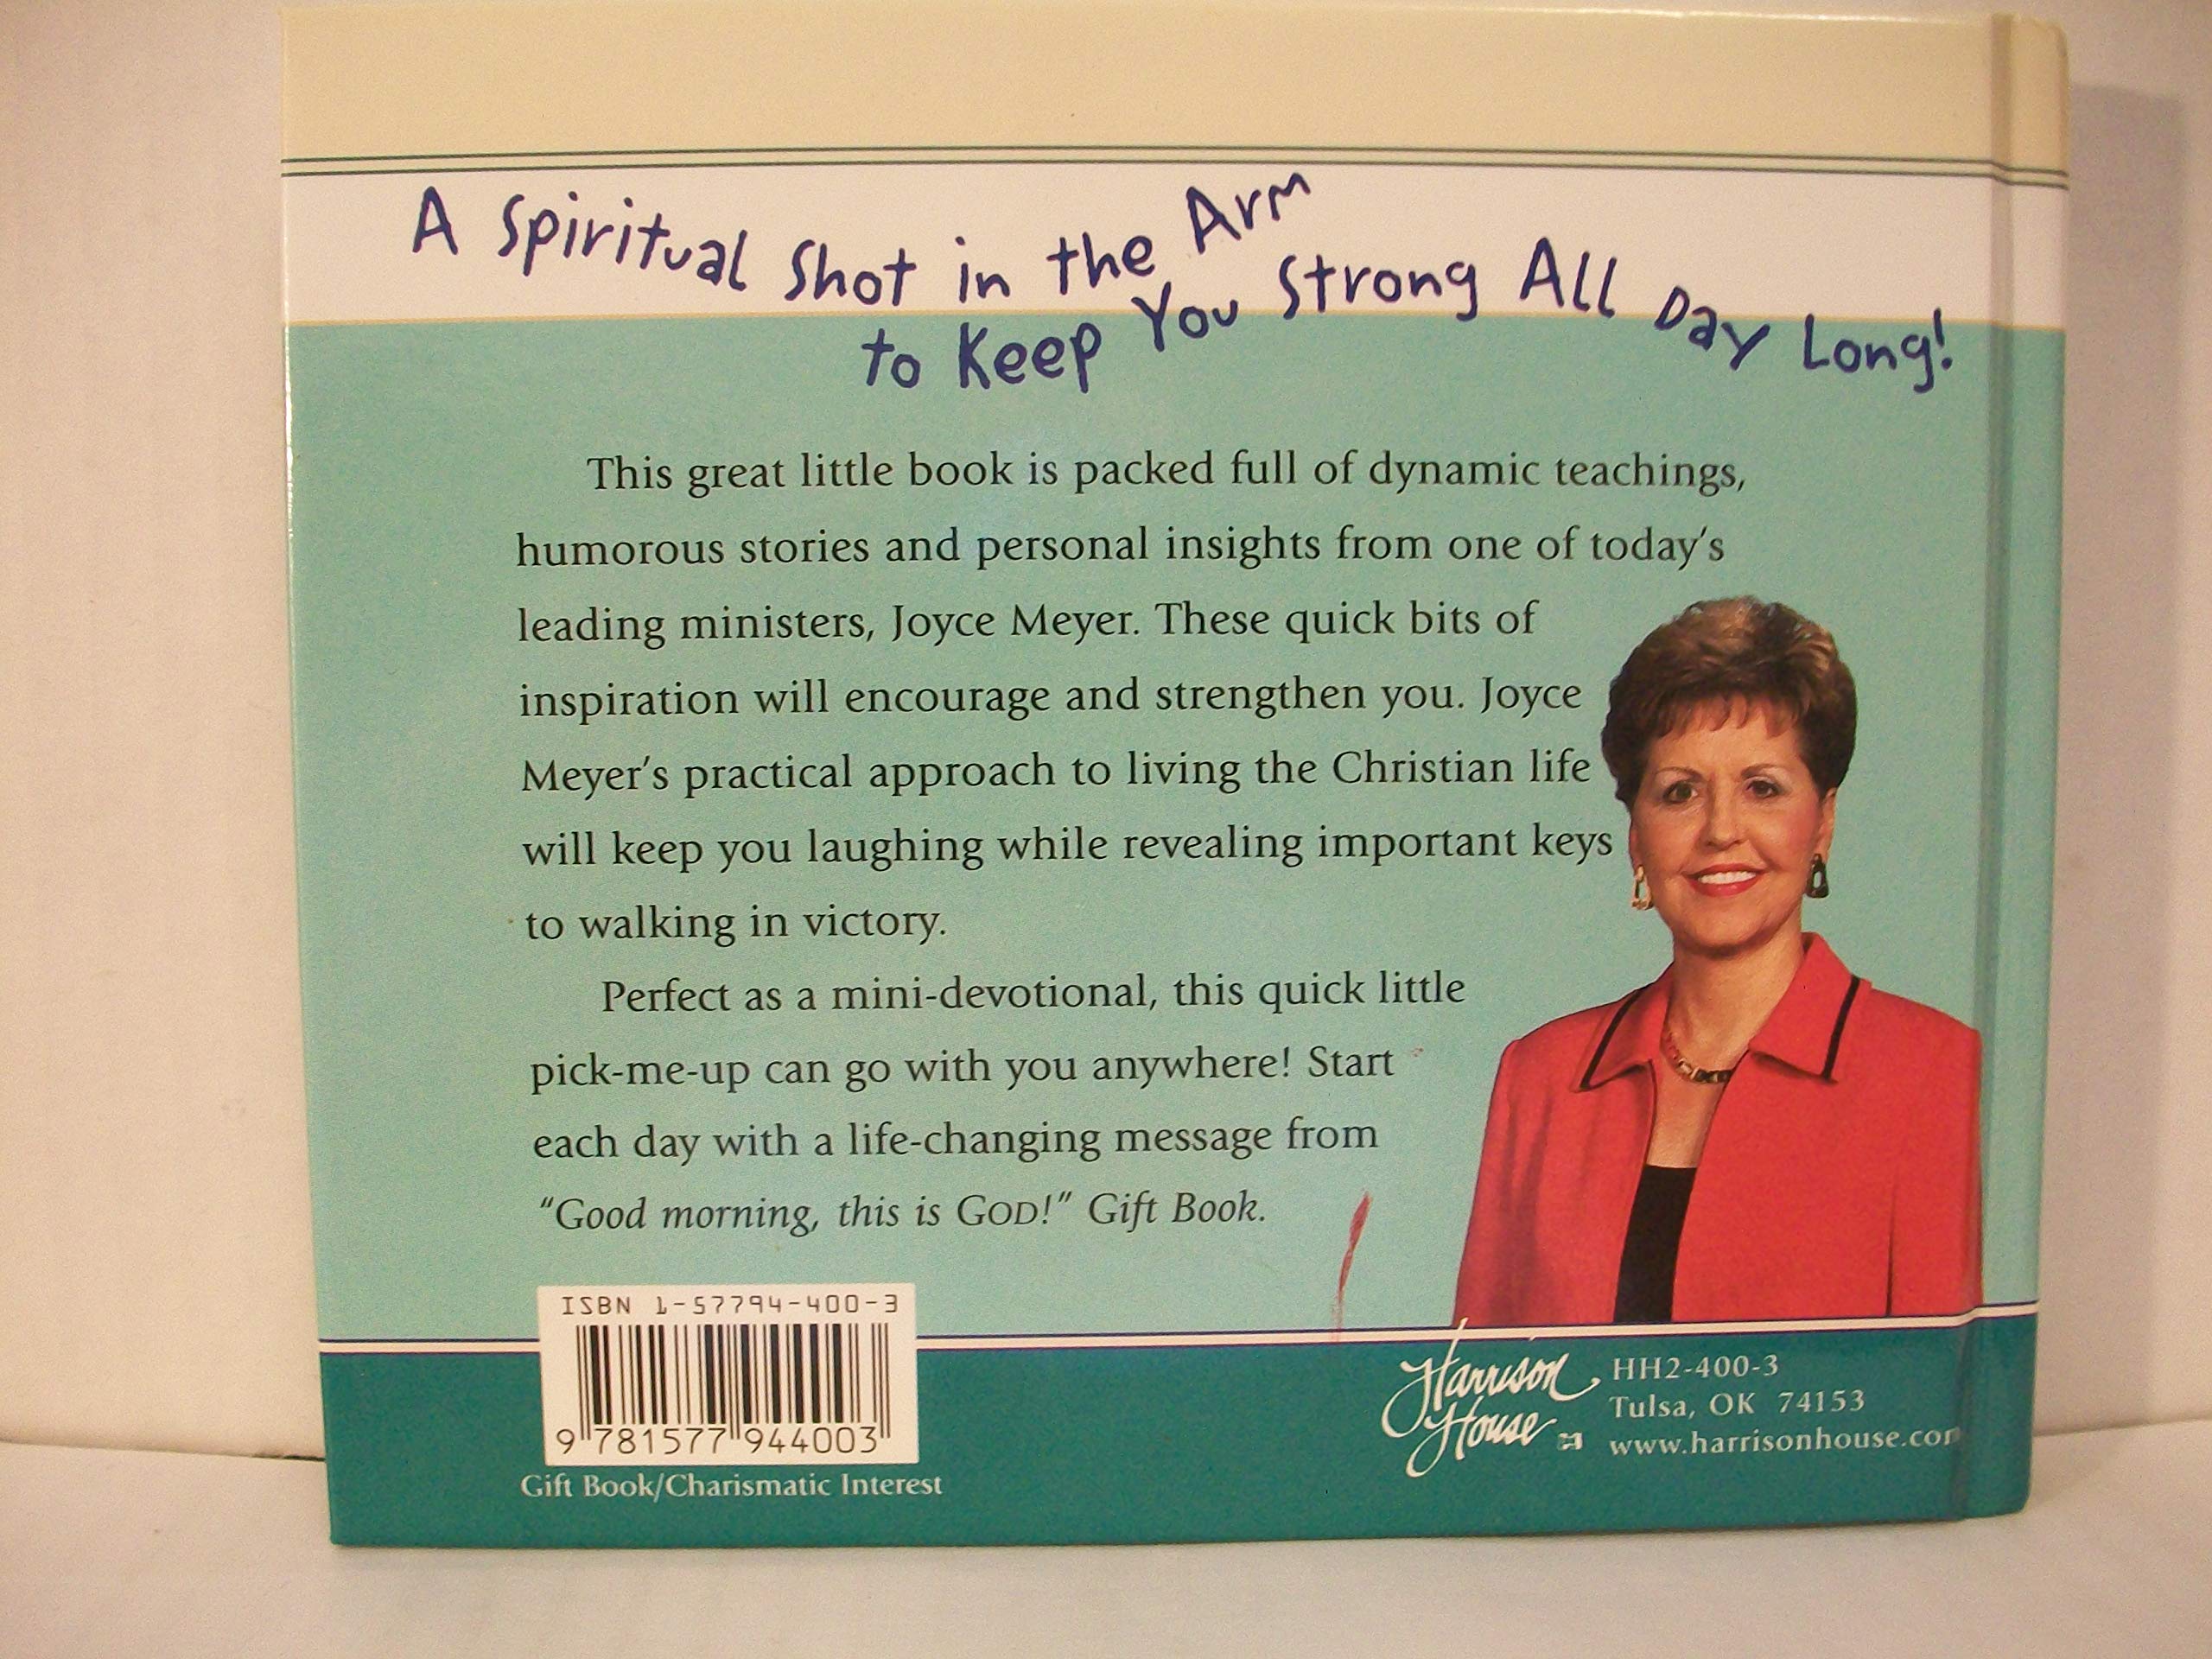 A Spiritual Shot in the Arm
to Keep You Strong All Day Long!
This great little book is packed full of dynamic teachings,
humorous stories and personal insights from one of today's
leading ministers, Joyce Meyer. These quick bits of
inspiration will encourage and strengthen you. Joyce
Meyer's practical approach to living the Christian life
will keep you laughing while revealing important keys
to walking in victory.
Perfect as a mini-devotional, this quick little
pick-me-up can go with you anywhere! Start
each day with a life-changing message from
"Good morning, this is GOD!" Gift Book.
ISBN 1-57794-400-3
9 781577 944003
Gift Book/Charismatic Interest
Harrison
House
HH2-400-3
Tulsa, OK 74153
www.harrisonhouse.com